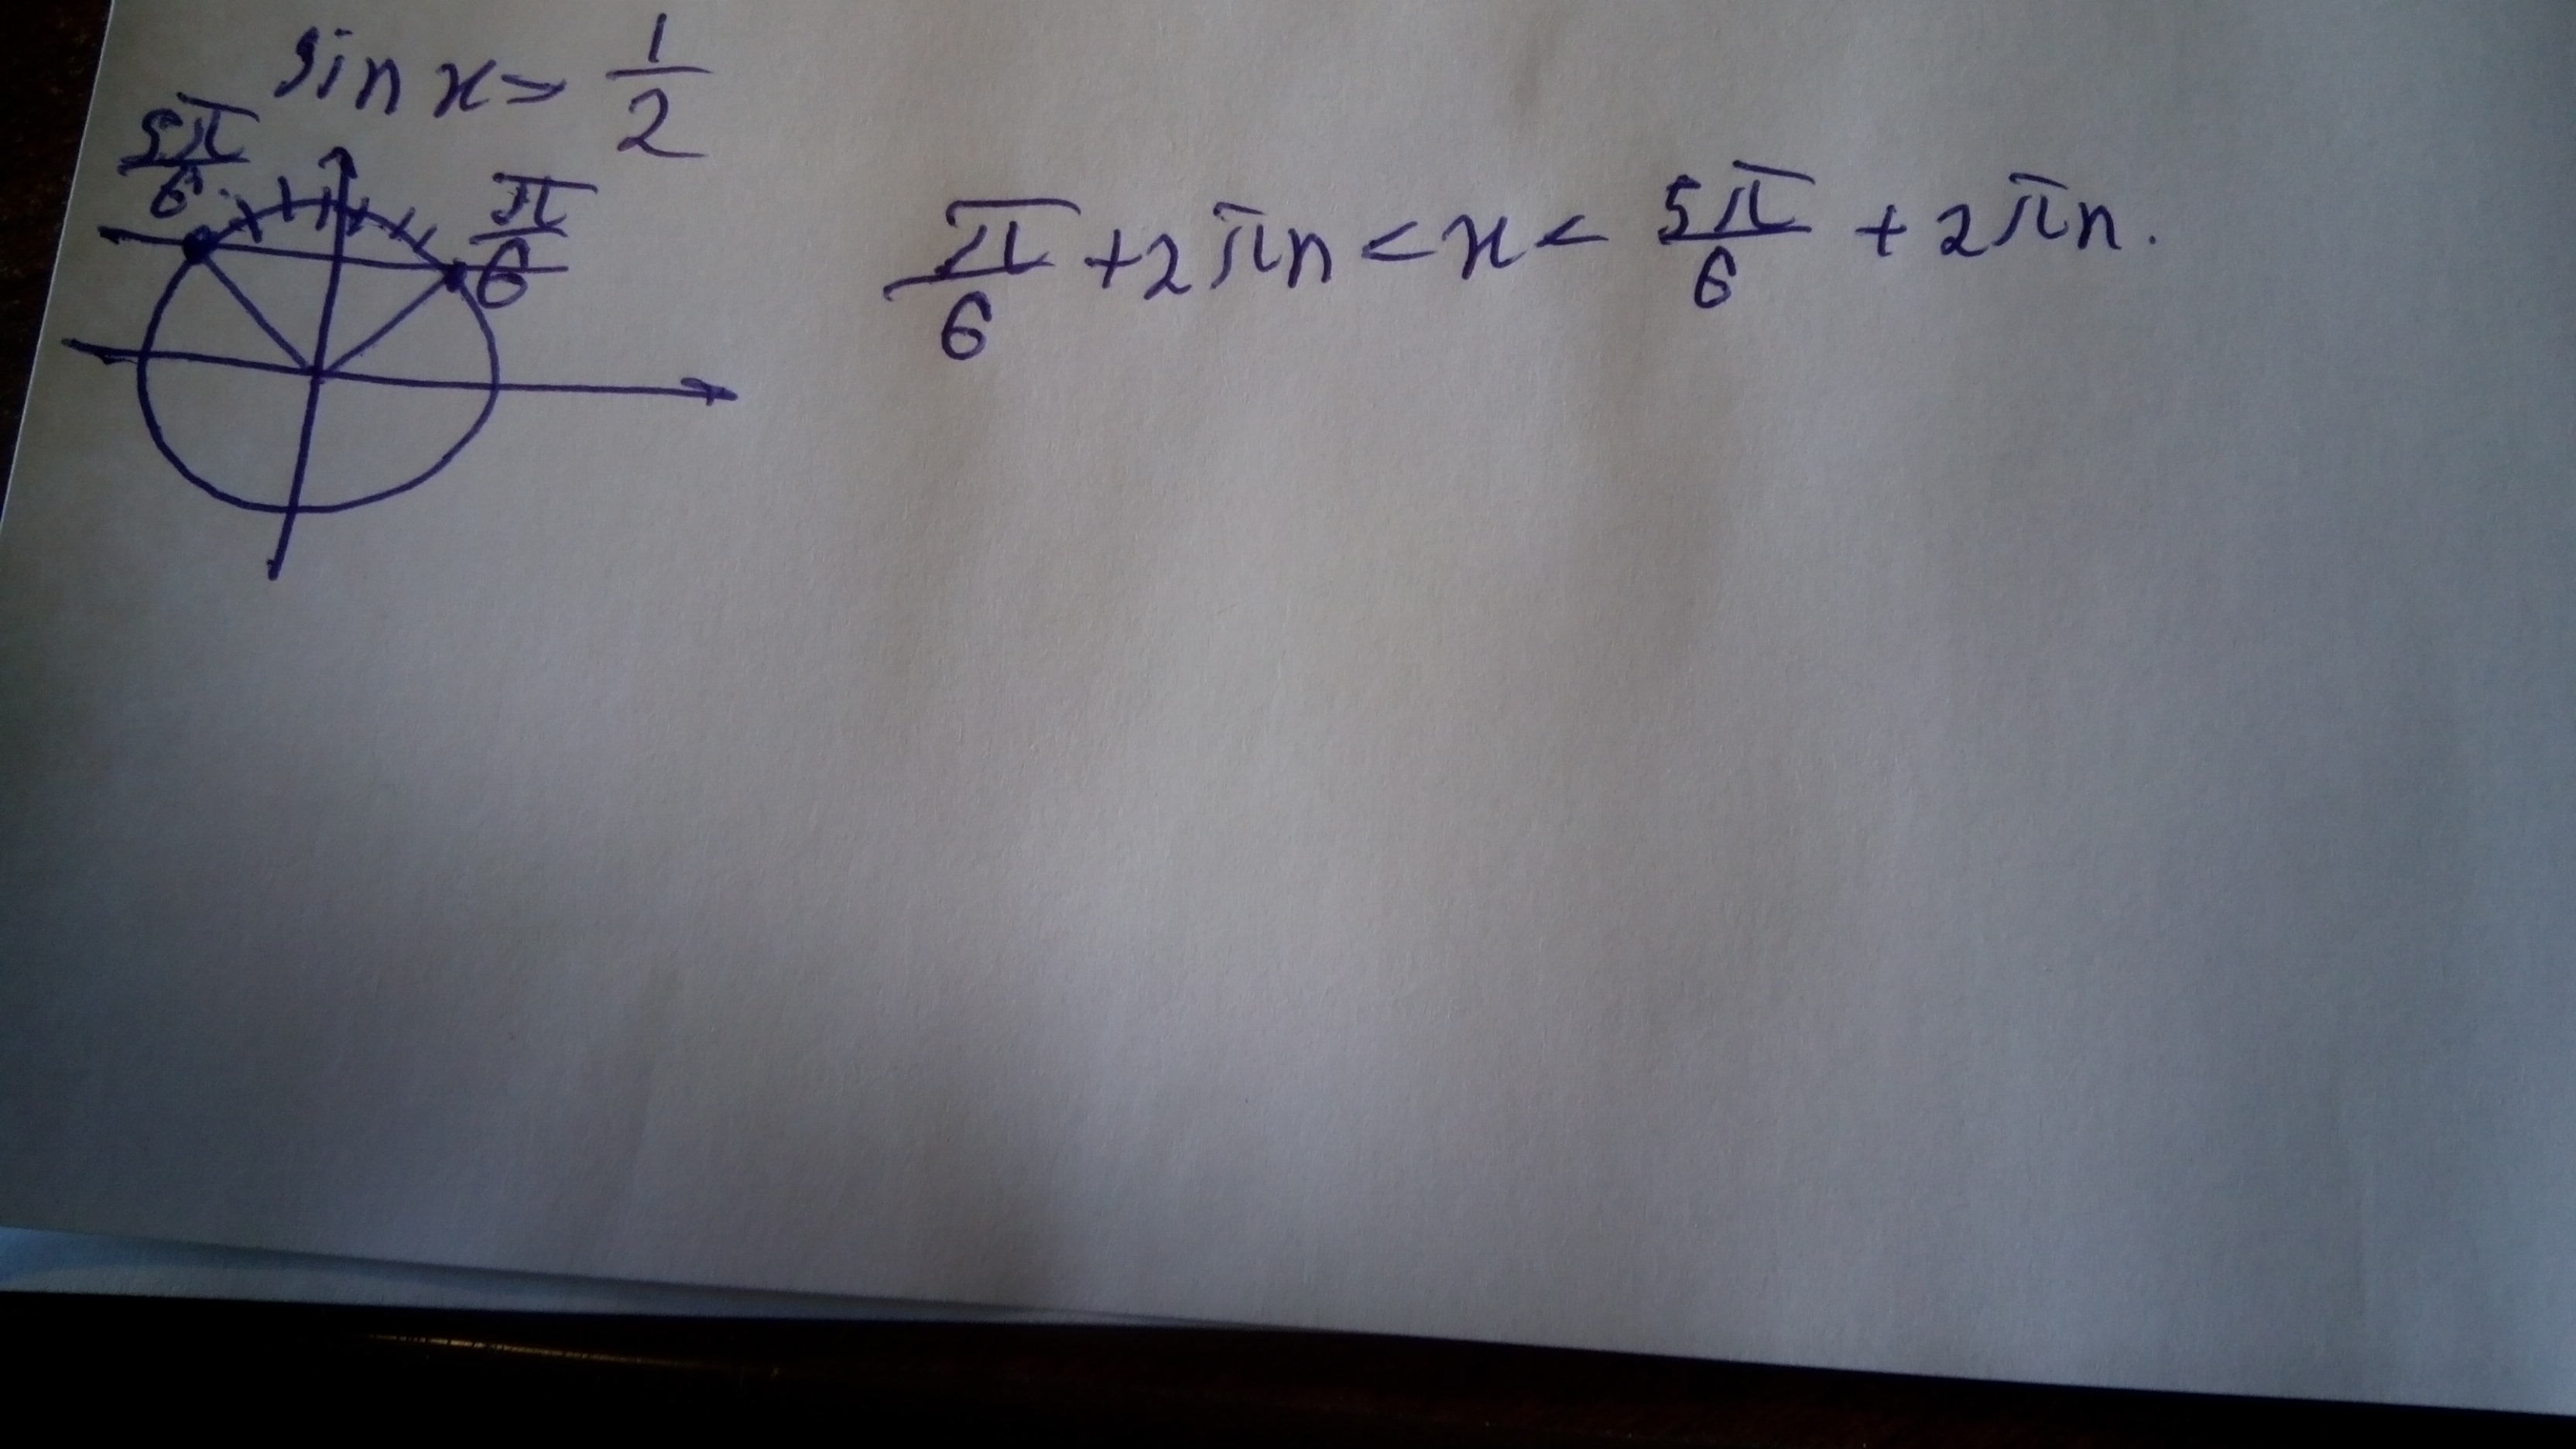 sin x > 1/2
5π/6
π/6
π/6 + 2πn < x < 5π/6 + 2πn.